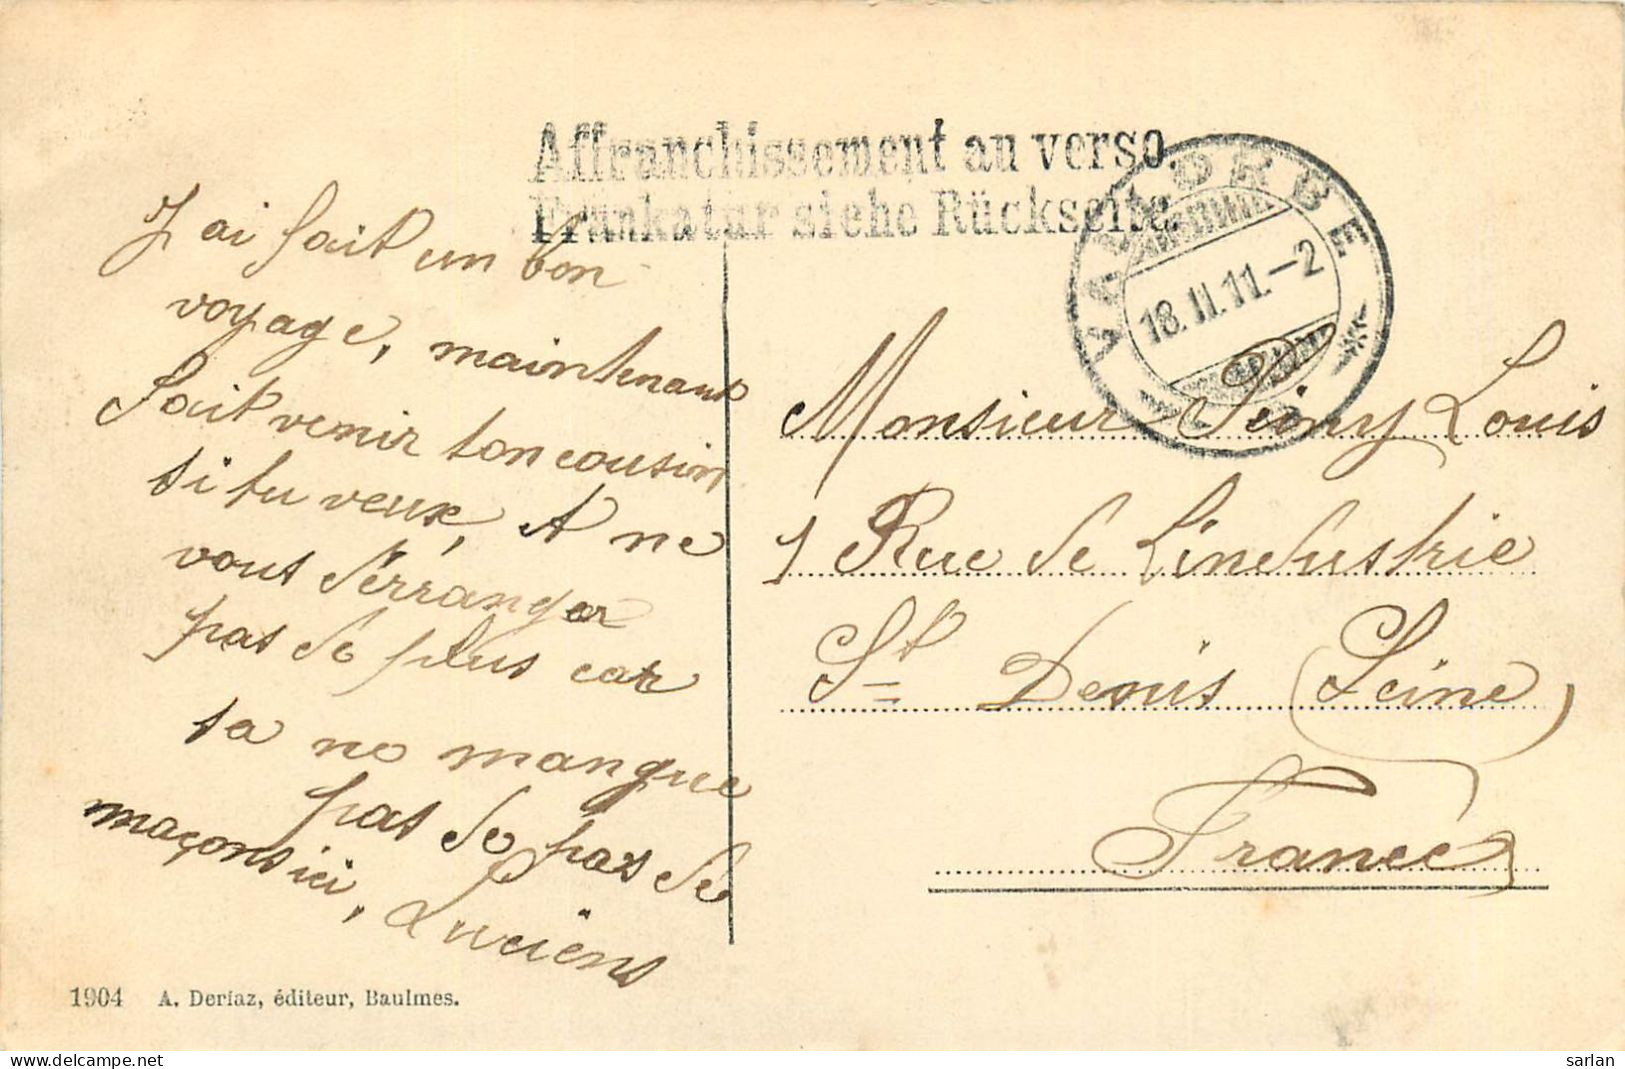 Affranchissement au verso.
Frankatur siehe Rückseite.
VALLORBE
18.II.11.-2
J'ai fait un bon
voyage, maintenant
fait venir ton cousin
si tu veux, A ne
vous dérranger
pas de plus car
sa ne manque
pas de pas de
maçons ici,
Luciens
Monsieur Peiny Louis
1 Rue de L'industrie
St Denis (Seine)
France
1904 A. Deriaz, éditeur, Baulmes.
sarlan